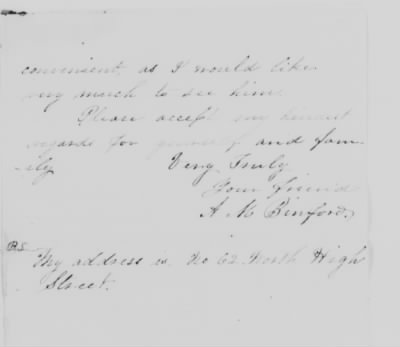 convenient, as I would like
very much to see him.
Please accept my kindest
regards for yourself and fam-
ily Very Truly
Your friend
A. M. Binford.
P.S.
My address is No 62 North High
Street.